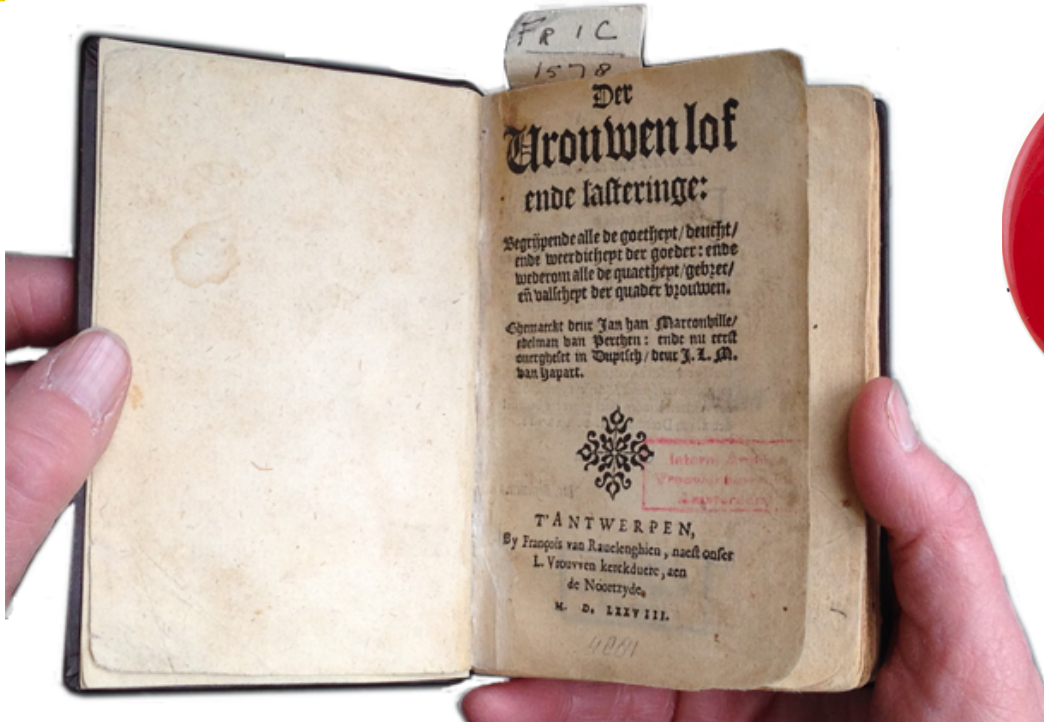 FR 1 C
1578
Der
Vrouwen lof
ende lasteringe:
Begrijpende alle de goetheyt/deucht/
ende weerdicheyt der goeder: ende
wederom alle de quaetheyt/gebrec/
eñ valscheyt der quader vrouwen.
Ghemaeckt deur Jan han Marconville/
edelman van Perchen: ende nu eerst
ouergheset in Duytsch/deur J. L. M.
van Hapart.
T'ANTWERPEN,
By François van Rauelenghien, naest onser
L. Vrouvven kerckduere, aen
de Noortzyde.
M. D. LXXVIII.